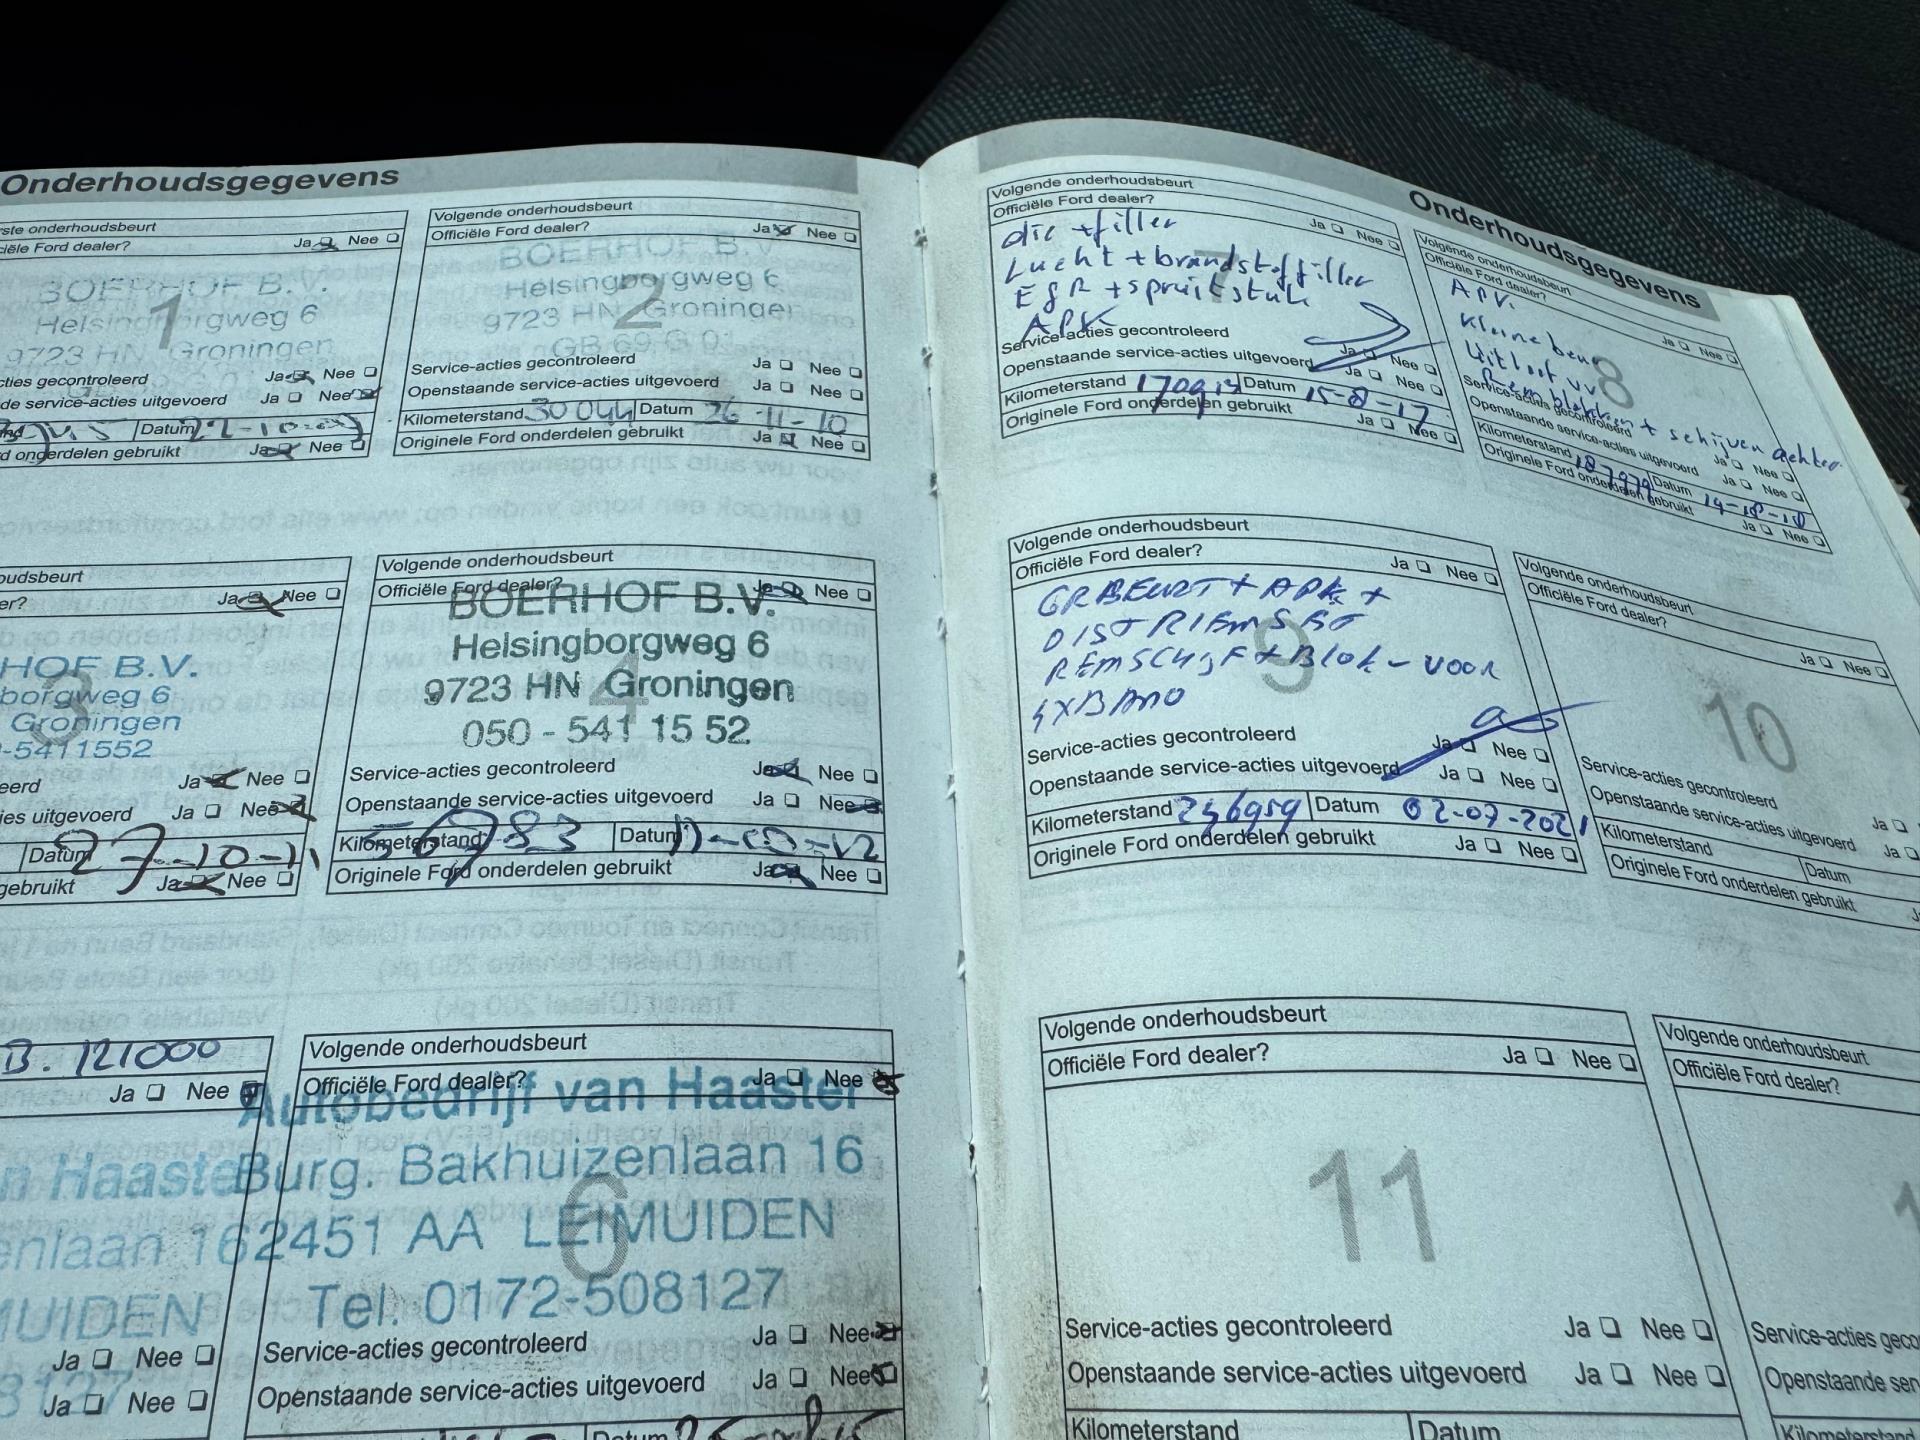 Onderhoudsgegevens
rste onderhoudsbeurt
iële Ford dealer? Ja Nee
BOERHOF B.V.
1
Helsingborgweg 6
9723 HN Groningen
cties gecontroleerd Ja Nee
de service-acties uitgevoerd Ja Nee
Datum
d onderdelen gebruikt Ja Nee
Volgende onderhoudsbeurt
Officiële Ford dealer? Ja Nee
BOERHOF B.V.
Helsingborgweg 6
2
9723 HN Groningen
Service-acties gecontroleerd Ja Nee
Openstaande service-acties uitgevoerd Ja Nee
Kilometerstand 30 044 Datum 26-11-10
Originele Ford onderdelen gebruikt Ja Nee
oudsbeurt
er? Ja Nee
HOF B.V.
borgweg 6
3
Groningen
-5411552
eerd Ja Nee
ies uitgevoerd Ja Nee
Datum 27-10-11
gebruikt Ja Nee
Volgende onderhoudsbeurt
Officiële Ford dealer? Ja Nee
BOERHOF B.V.
Helsingborgweg 6
4
9723 HN Groningen
050 - 541 15 52
Service-acties gecontroleerd Ja Nee
Openstaande service-acties uitgevoerd Ja Nee
Kilometerstand 56983 Datum
Originele Ford onderdelen gebruikt Ja Nee
B. 121000
Ja Nee
n Haaste
enlaan 16
MUIDEN
Ja Nee
8127
Ja Nee
Volgende onderhoudsbeurt
Officiële Ford dealer? Ja Nee
Autobedrijf van Haaster
Burg. Bakhuizenlaan 16
6
2451 AA LEIMUIDEN
Tel. 0172-508127
Service-acties gecontroleerd Ja Nee
Openstaande service-acties uitgevoerd Ja Nee
Datum
Onderhoudsgegevens
Volgende onderhoudsbeurt
Officiële Ford dealer? Ja Nee
olie +filler
Lucht + brandstoffiller
EGR + spruitstuk
APK
Service-acties gecontroleerd Ja Nee
Openstaande service-acties uitgevoerd Ja Nee
Kilometerstand Datum 15-8-17
Originele Ford onderdelen gebruikt Ja Nee
Volgende onderhoudsbeurt
Officiële Ford dealer? Ja Nee
APK
Kleine beurt
8
Uitlaat vv
Remblokken + schijven achter
Service-acties gecontroleerd Ja Nee
Openstaande service-acties uitgevoerd Ja Nee
Kilometerstand 187979 Datum
Originele Ford onderdelen gebruikt Ja Nee
Volgende onderhoudsbeurt
Officiële Ford dealer? Ja Nee
GR BEURT + APK +
DISTRIEMSET
9
REMSCHIJF + BLOK - VOOR
4X BAND
Service-acties gecontroleerd Ja Nee
Openstaande service-acties uitgevoerd Ja Nee
Kilometerstand Datum 02-07-2021
Originele Ford onderdelen gebruikt Ja Nee
Volgende onderhoudsbeurt
Officiële Ford dealer? Ja Nee
10
Service-acties gecontroleerd Ja
Openstaande service-acties uitgevoerd Ja
Kilometerstand Datum
Originele Ford onderdelen gebruikt
Volgende onderhoudsbeurt
Officiële Ford dealer? Ja Nee
11
Service-acties gecontroleerd Ja Nee
Openstaande service-acties uitgevoerd Ja Nee
Kilometerstand Datum
Volgende onderhoudsbeurt
Officiële Ford dealer?
1
Service-acties geco
Openstaande ser
Kilometerstand